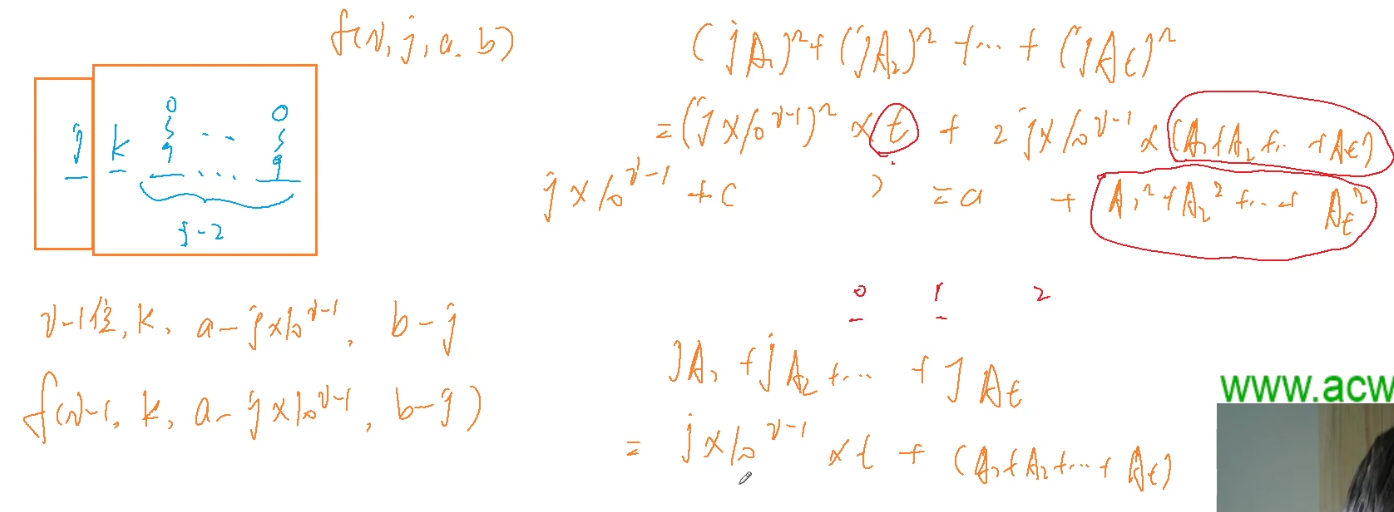 f(i, j, a, b)
j k 0 ~ 9 ... 0 ~ 9
i-2
i-1位, k, a-j×10^{i-1}, b-j
f(i-1, k, a-j×10^{i-1}, b-j)
(jA₁)²+(jA₂)²+...+(jAt)²
=(j×10^{i-1})²×t + 2j×10^{i-1}×(A₁+A₂+...+At)
+ A₁²+A₂²+...+At²
j×10^{i-1}+c
=a
0 1 2
jA₁+jA₂+...+jAt
= j×10^{i-1}×t+(A₁+A₂+...+At)
www.acw